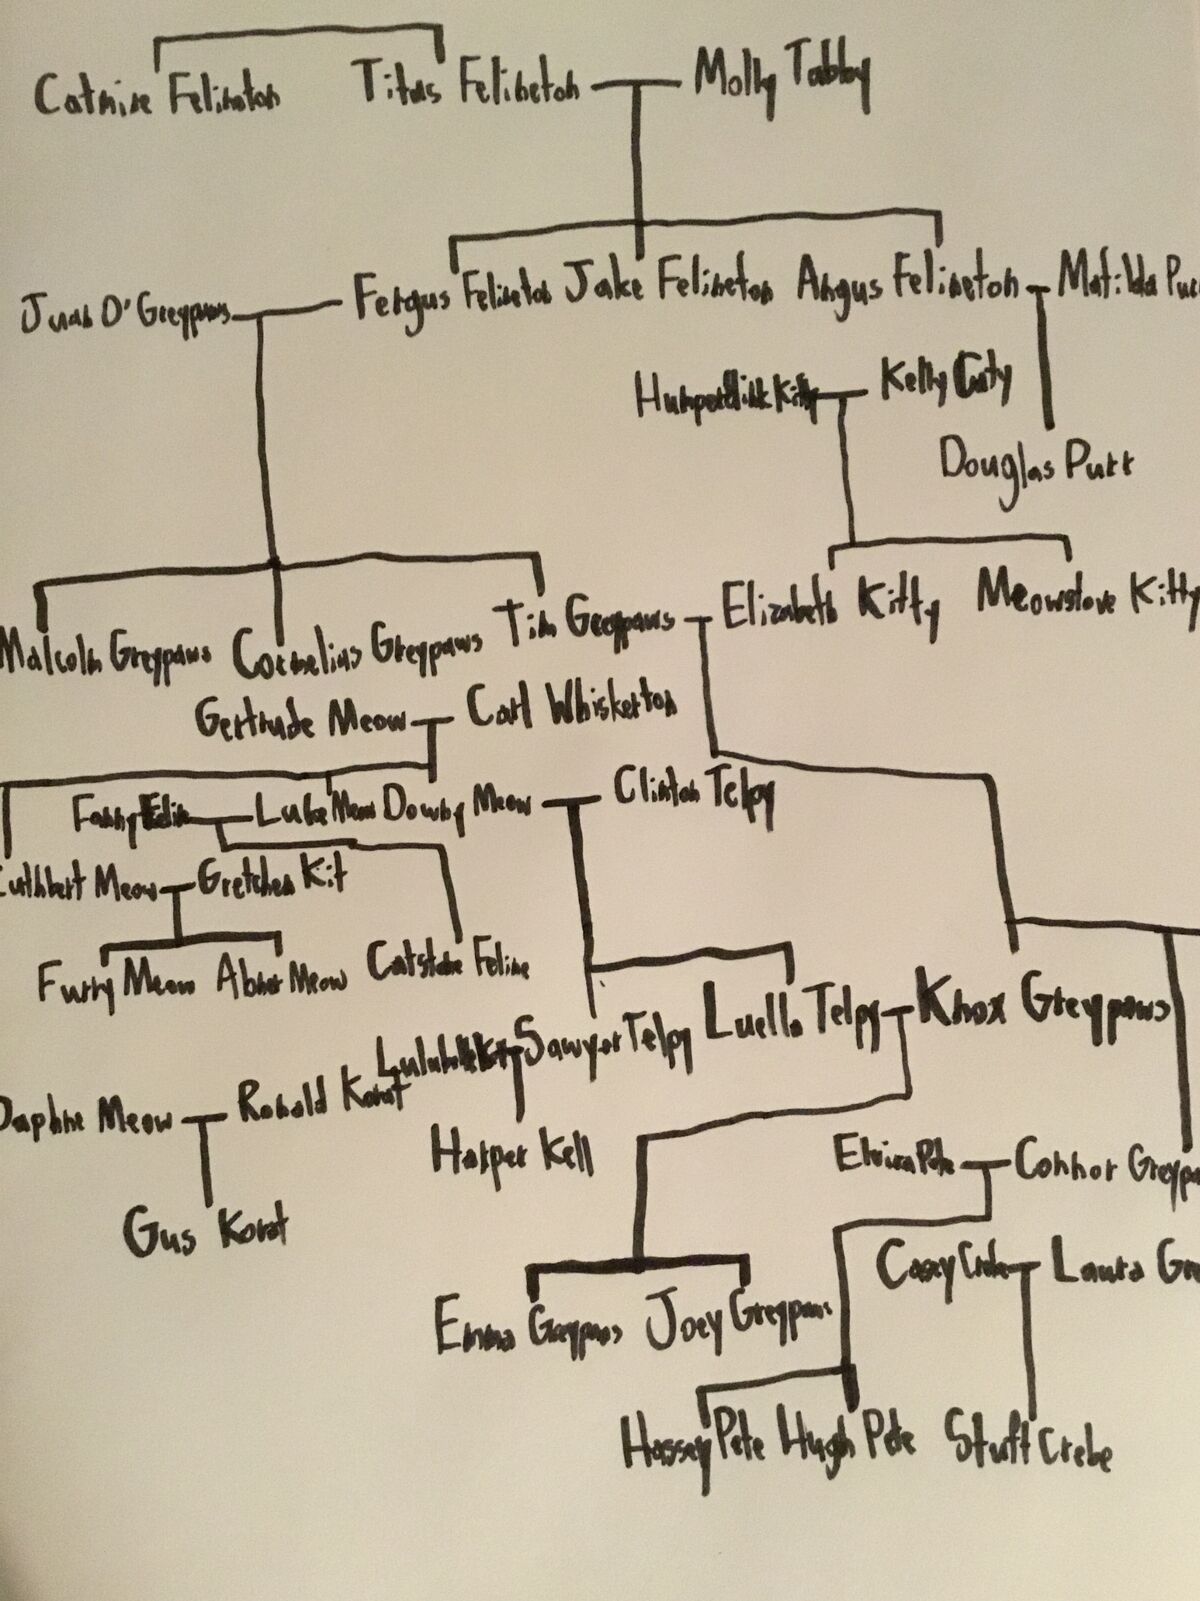 Catnise Felineton Titus Felineton Molly Tabby
Juan O'Greypaws Fergus Felineton Jake Felineton Angus Felineton Matilda
Kitty Kelly
Douglas Purr
Malcolm Greypaws Cornelius Greypaws Tim Greypaws Elizabeth Kitty Meowstove Kitty
Gertrude Meow Carl Whiskerton
Fanny Luke Meow Downy Meow Clinton Telpy
Cuthbert Meow Gretchen Kit
Furry Meow Abner Meow Catstone Feline
Sawyer Telpy Luella Telpy Knox Greypaws
Daphne Meow Ronald Korat
Harper Kell Elvira Pete Connor
Gus Korat
Casey Crebe Laura
Emma Greypaws Joey Greypaws
Hassey Pete Hugh Pete Stuft Crebe